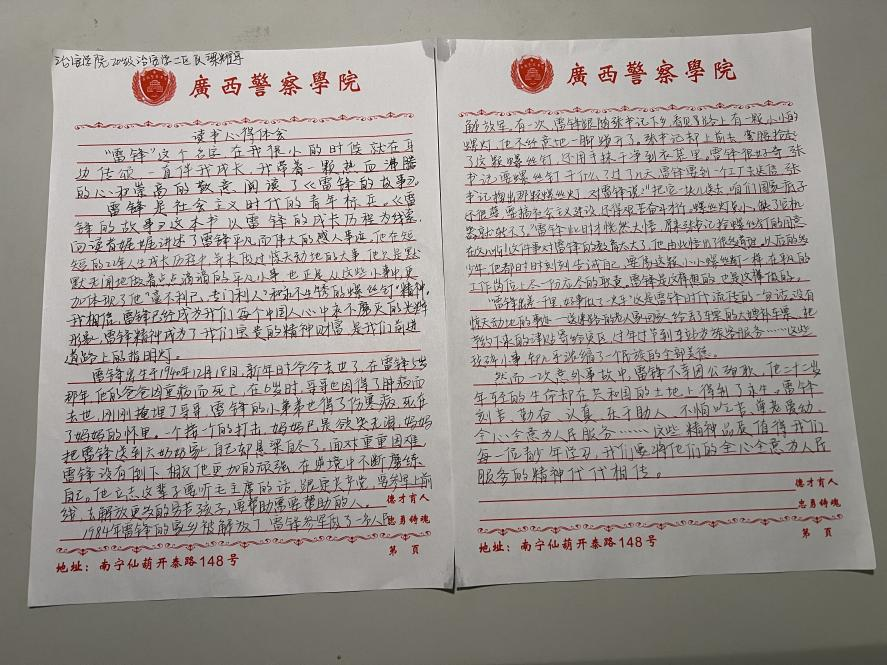 治安学院20级治安学二区队
廣西警察學院
读书心得体会
“雷锋”这个名字在我很小的时候就在耳
边传颂一直伴我成长,我带着一颗热血沸腾
的心和崇高的敬意阅读了《雷锋的故事》。
雷锋是社会主义时代的青年标兵。《雷
锋的故事》这本书以雷锋的成长历程为线索,
向读者娓娓讲述了雷锋平凡而伟大的感人事迹。他在短
短的22年人生成长历程中并未做过惊天动地的大事,他只是默
默无闻地做着点点滴滴的平凡小事也正是从这些小事中更
加体现了他“毫不利己,专门利人”和永不生锈的螺丝钉精神。
我相信,雷锋已经成为我们每个中国人心中永不磨灭的光辉
形象,雷锋精神成为了我们宝贵的精神财富是我们前进
道路上的指明灯。
雷锋出生于1940年12月18日,新年时爷爷去世了,在雷锋5岁
那年他的爸爸因重病而死亡,在6岁时,哥哥也因得了肺病而
去世,刚刚掩埋了哥哥,雷锋的小弟弟也得了伤寒病,死在
了妈妈的怀里。一个接一个的打击,妈妈已是欲哭无泪,妈妈
把雷锋送到六奶奶家,自己却悬梁自尽了。面对重重困难
雷锋没有倒下相反他更加的顽强,在逆境中不断磨练
自己。他立志这辈子要听毛主席的话,跟定共产党,要参军上前
线,去解放更多的穷苦孩子,要帮助需要帮助的人。
1984年雷锋的家乡被解放了雷锋参军成了一名人民
德才育人
忠勇铸魂
第 页
地址:南宁仙葫开泰路148号
廣西警察學院
解放军。有一次,雷锋跟随张书记下乡,看见路上有一颗小小的
螺丝钉,他不经意地一脚踢开了。张书记却上前去,弯腰拾起
了这颗螺丝钉,还用手抹干净到衣袋里。雷锋很好奇,张
书记要螺丝钉干什么?过了几天雷锋要到一个工厂去送信,张
书记掏出那颗螺丝钉,对雷锋说:“把它一块儿送去,咱们国家底子
还很薄,要搞社会主义建设,还得艰苦奋斗才行,螺丝钉虽小,缺了它机
器就转不了。”雷锋此时才恍然大悟,原来张书记拾螺丝钉的用意
在这儿啊!这件事对雷锋的教育太大了,他由此悟出了很多道理,从后的多
少年,他都时时刻刻告诫自己,要像这颗小小螺丝钉一样,在平凡的
工作岗位上尽一份应尽的职责,雷锋是这样想的,也是这样做的。
“雷锋出差一千里,好事做了一火车”这是雷锋时代流传的一句话,没有
惊天动地的事迹——送迷路的老人家回家,给丢了车票的大嫂补车票,把
节约下来的津贴寄给灾区,过年过节到车站为旅客服务……这些
然而一次意外事故中,雷锋不幸因公殉职,他二十二岁
年轻的生命却在共和国的土地上得到了永生。雷锋
刻苦、勤奋、认真、乐于助人、不怕吃苦、尊老爱幼、
全心全意为人民服务……这些精神品质值得我们
每一位青少年学习,我们要将他们的全心全意为人民
服务的精神代代相传。
德才育人
忠勇铸魂
第 页
地址:南宁仙葫开泰路148号